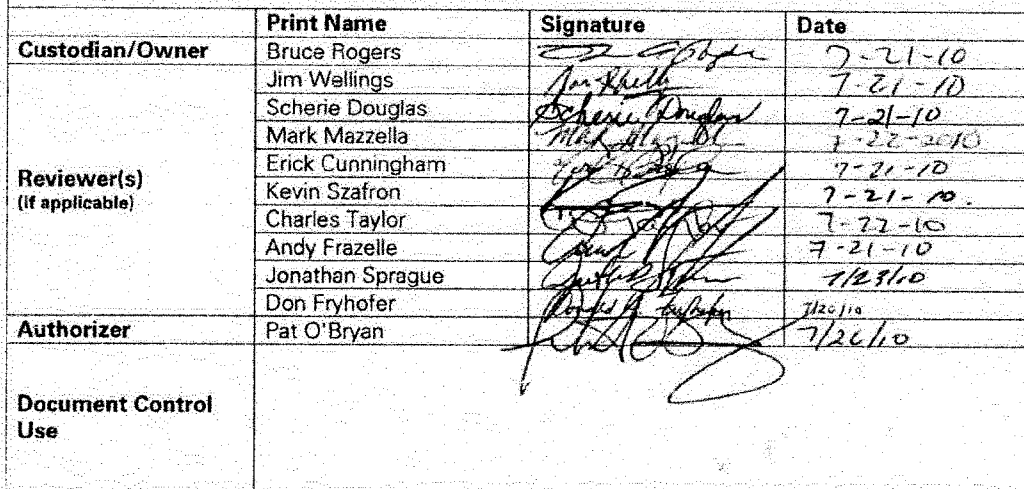 Print Name Signature Date
Custodian/Owner Bruce Rogers 7-21-10
Jim Wellings 7-21-10
Scherie Douglas Scherie Douglas 7-21-10
Mark Mazzella Mark 7-22-2010
Erick Cunningham 7-21-10
Reviewer(s)
(if applicable)
Kevin Szafron 7-21-10.
Charles Taylor 7-22-10
Andy Frazelle 7-21-10
Jonathan Sprague 7/23/10
Don Fryhofer 7/26/10
Authorizer Pat O'Bryan 7/26/10
Document Control
Use